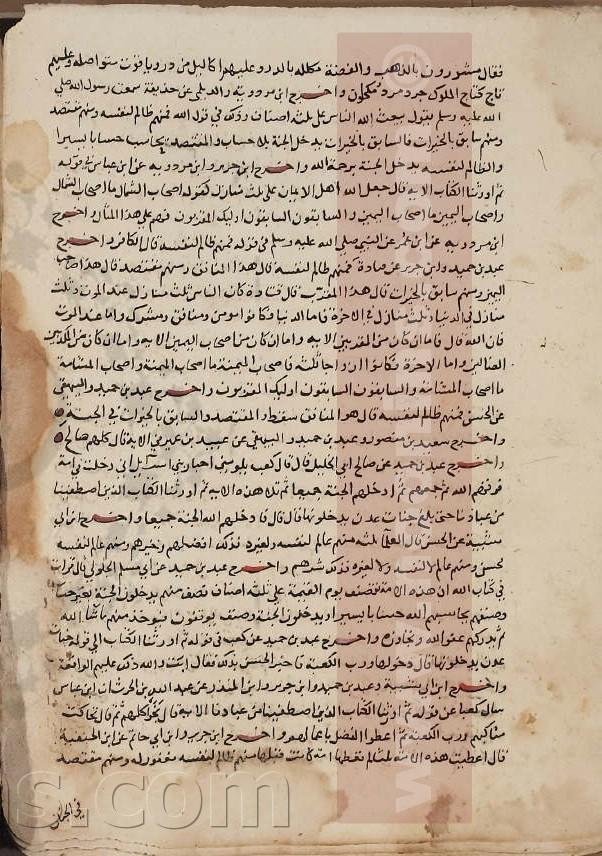 فقال مسورون بالذهب والفضة مكللة بالدر وعليهم اكاليل من در وياقوت متواصلة وعليهم
تاج كتاج الملوك جرد مرد مكحلون واخرج ابن مردويه والديلمي عن حذيفة سمعت رسول الله صلى
الله عليه وسلم يقول يبعث الله الناس على ثلثة اصناف وذلك في قول الله فمنهم ظالم لنفسه ومنهم مقتصد
ومنهم سابق بالخيرات فالسابق بالخيرات يدخل الجنة بلا حساب والمقتصد يحاسب حسابا يسيرا
والظالم لنفسه يدخل الجنة برحمة الله واخرج ابن جرير وابن مردويه عن ابن عباس في قوله
ثم اورثنا الكتاب الاية قال جعل الله اهل الايمان على ثلث منازل كقوله اصحاب الشمال ما اصحاب الشمال
واصحاب اليمين ما اصحاب اليمين والسابقون السابقون اوليك المقربون فهم على هذا المثال واخرج
ابن مردويه عن ابن عمر عن النبي صلى الله عليه وسلم في قوله فمنهم ظالم لنفسه قال الكافر واخرج
عبد بن حميد وابن جرير عن قتادة فمنهم ظالم لنفسه قال هذا المنافق ومنهم مقتصد قال هذا صاحب
اليمين ومنهم سابق بالخيرات قال هذا المقرب قال قتادة كان الناس ثلث منازل عند الموت وثلث
منازل في الدنيا وثلث منازل في الاخرة فاما الدنيا فكانوا مومن ومنافق ومشرك واما عند الموت
فان الله قال فاما ان كان من المقربين الاية واما ان كان من اصحاب اليمين الاية واما ان كان من المكذبين
الضالين واما الاخرة فكانوا ازواجا ثلثة فاصحاب الميمنة ما اصحاب الميمنة واصحاب المشامة
ما اصحاب المشامة والسابقون السابقون اوليك المقربون واخرج عبد بن حميد والبيهقي
عن الحسن فمنهم ظالم لنفسه قال هو المنافق سقط والمقتصد والسابق بالخيرات في الجنة
واخرج سعيد بن منصور وعبد بن حميد والبيهقي عن عبيد بن عمير في الاية قال كلهم صالح
واخرج عبد بن حميد عن صالح ابي الخليل قال قال كعب يلومني احبار بني اسرآيل اني دخلت في امة
فرقهم الله ثم جمعهم ثم ادخلهم الجنة جميعا ثم تلا هذه الاية ثم اورثنا الكتاب الذين اصطفينا
من عبادنا حتى بلغ جنات عدن يدخلونها قال قال فادخلهم الله الجنة جميعا واخرج ابن ابي
شيبة عن الحسن قال العلماء ثلثة منهم عالم لنفسه ولغيره فذلك افضلهم وخيرهم ومنهم عالم لنفسه
محسن ومنهم عالم لا لنفسه ولا لغيره فذلك شرهم واخرج عبد بن حميد عن ابي مسلم الخولاني قال قرات
في كتاب الله ان هذه الامة تصنف يوم القيمة على ثلثة اصناف صنف منهم يدخلون الجنة بغير حساب
وصنف يحاسبهم الله حسابا يسيرا ويدخلون الجنة وصنف يوقفون فيوخذ منهم ما شا الله
ثم يدركهم عفو الله وتجاوزه واخرج عبد بن حميد عن كعب في قوله ثم اورثنا الكتاب الى قوله جنات
عدن يدخلونها قال دخلوها ورب الكعبة فاخبر الحسن بذلك فقال ابت والله ذلك عليهم الواقعة
واخرج ابن ابي شيبة وعبد بن حميد وابن جرير وابن المنذر عن عبد الله بن الحرث ان ابن عباس
سال كعبا عن قوله ثم اورثنا الكتاب الذين اصطفينا من عبادنا الاية قال نجوا كلهم ثم قال تحاكت
مناكبهم ورب الكعبة ثم اعطوا الفضل باعمالهم واخرج ابن جرير وابن ابي حاتم عن ابن الحنفية
قال اعطيت هذه الامة ثلثا لم تعطها امة كانت قبلها منهم ظالم لنفسه مغفور له ومنهم مقتصد
في الجنان
s.com